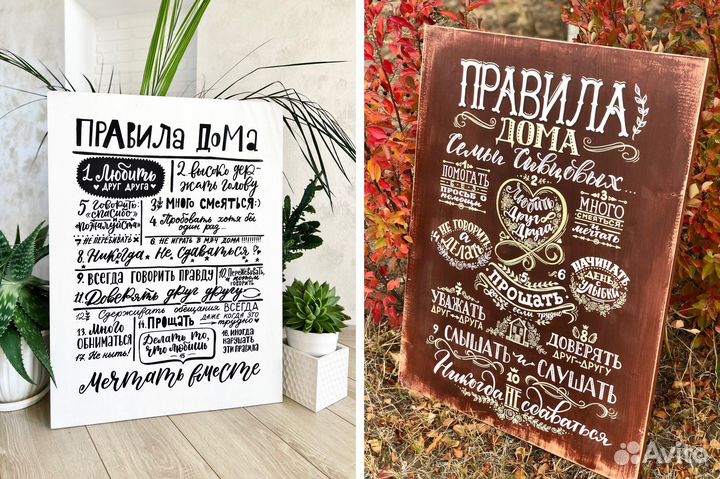 ПРАВИЛА ДОМА
1 Любить
друг друга
2 высоко дер-
жать голову
5 Говорить:
"спасибо"
"пожалуйста"
3 Много смеяться:)
4 Пробовать хотя бы
один раз...
7 НЕ ПЕРЕБИВАТЬ
6. НЕ ИГРАТЬ В МЯЧ ДОМА !!!!!!!!
8. Никогда Не Сдаваться
9. ВСЕГДА ГОВОРИТЬ ПРАВДУ
10. Пережевывать,
потом
говорить
11. Доверять друг другу
12 Сдерживать обещания ВСЕГДА
даже когда это
трудно
13. Много
Обниматься
17. Не ныть!
14. ПРОЩАТЬ
Делать то,
что любишь
15
16. иногда
нарушать
эти правила
Мечтать вместе
ПРАВИЛА
ДОМА
Семьи Сивцовых...
1
ПОМОГАТЬ
БЕЗ
ПРОСЬБ О
ПОМОЩИ
2
Любить
Друг
Друга
3
МНОГО
СМЕЯТЬСЯ
и
мечтать
4
НЕ ГОВОРИТЬ
а
ДЕЛАТЬ
5
ПРОЩАТЬ
даже если трудно
6
НАЧИНАТЬ
ДЕНЬ
с
УЛЫБКИ
7
УВАЖАТЬ
ДРУГ ДРУГА
8
ДОВЕРЯТЬ
ДРУГ-ДРУГУ
9
СЛЫШАТЬ и СЛУШАТЬ
10
Никогда НЕ сдаваться
Avito